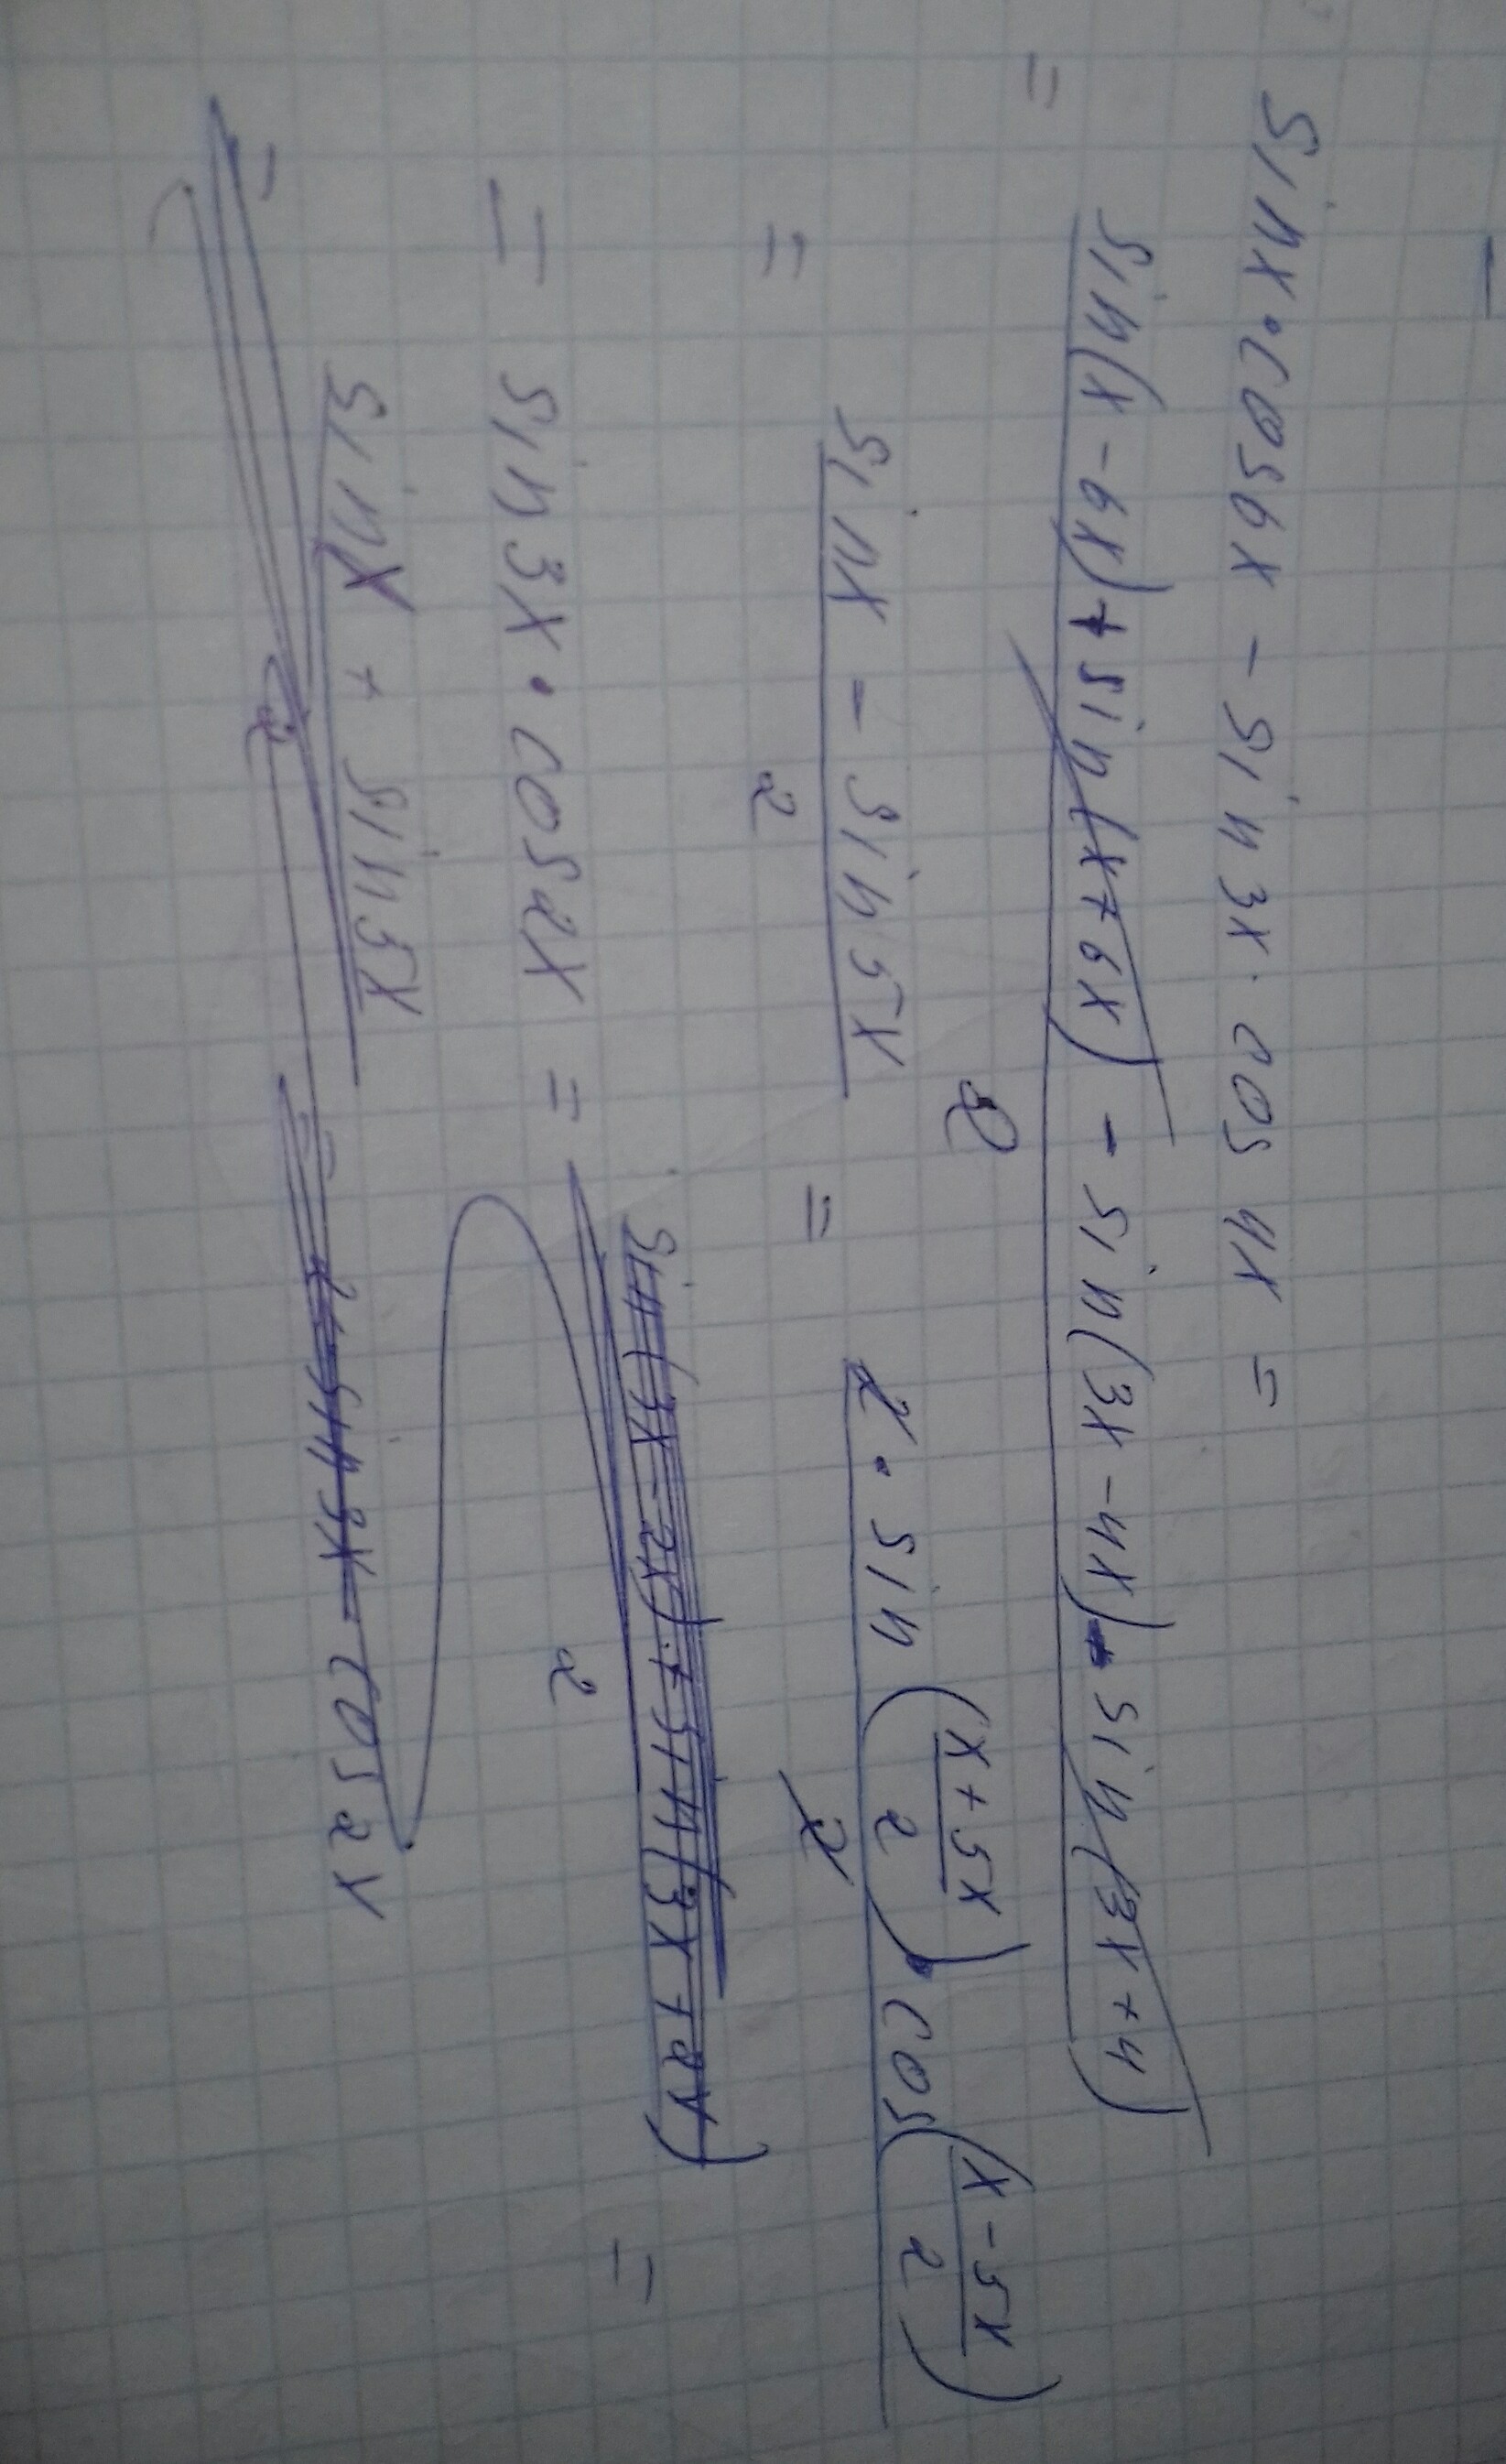 sinx · cos6x - sin3x · cos4x =
= sin(x - 6x) + sin(x + 6x) - sin(3x - 4x) - sin(3x + 4)
2
= sinx - sin5x / 2 = 2 · sin(x + 5x / 2) · cos(x - 5x / 2) / 2
= sin3x · cos2x = sin(3x - 2x) + sin(3x + 2x) / 2 =
= sinx + sin5x / 2 = 2 · sin3x cos2x